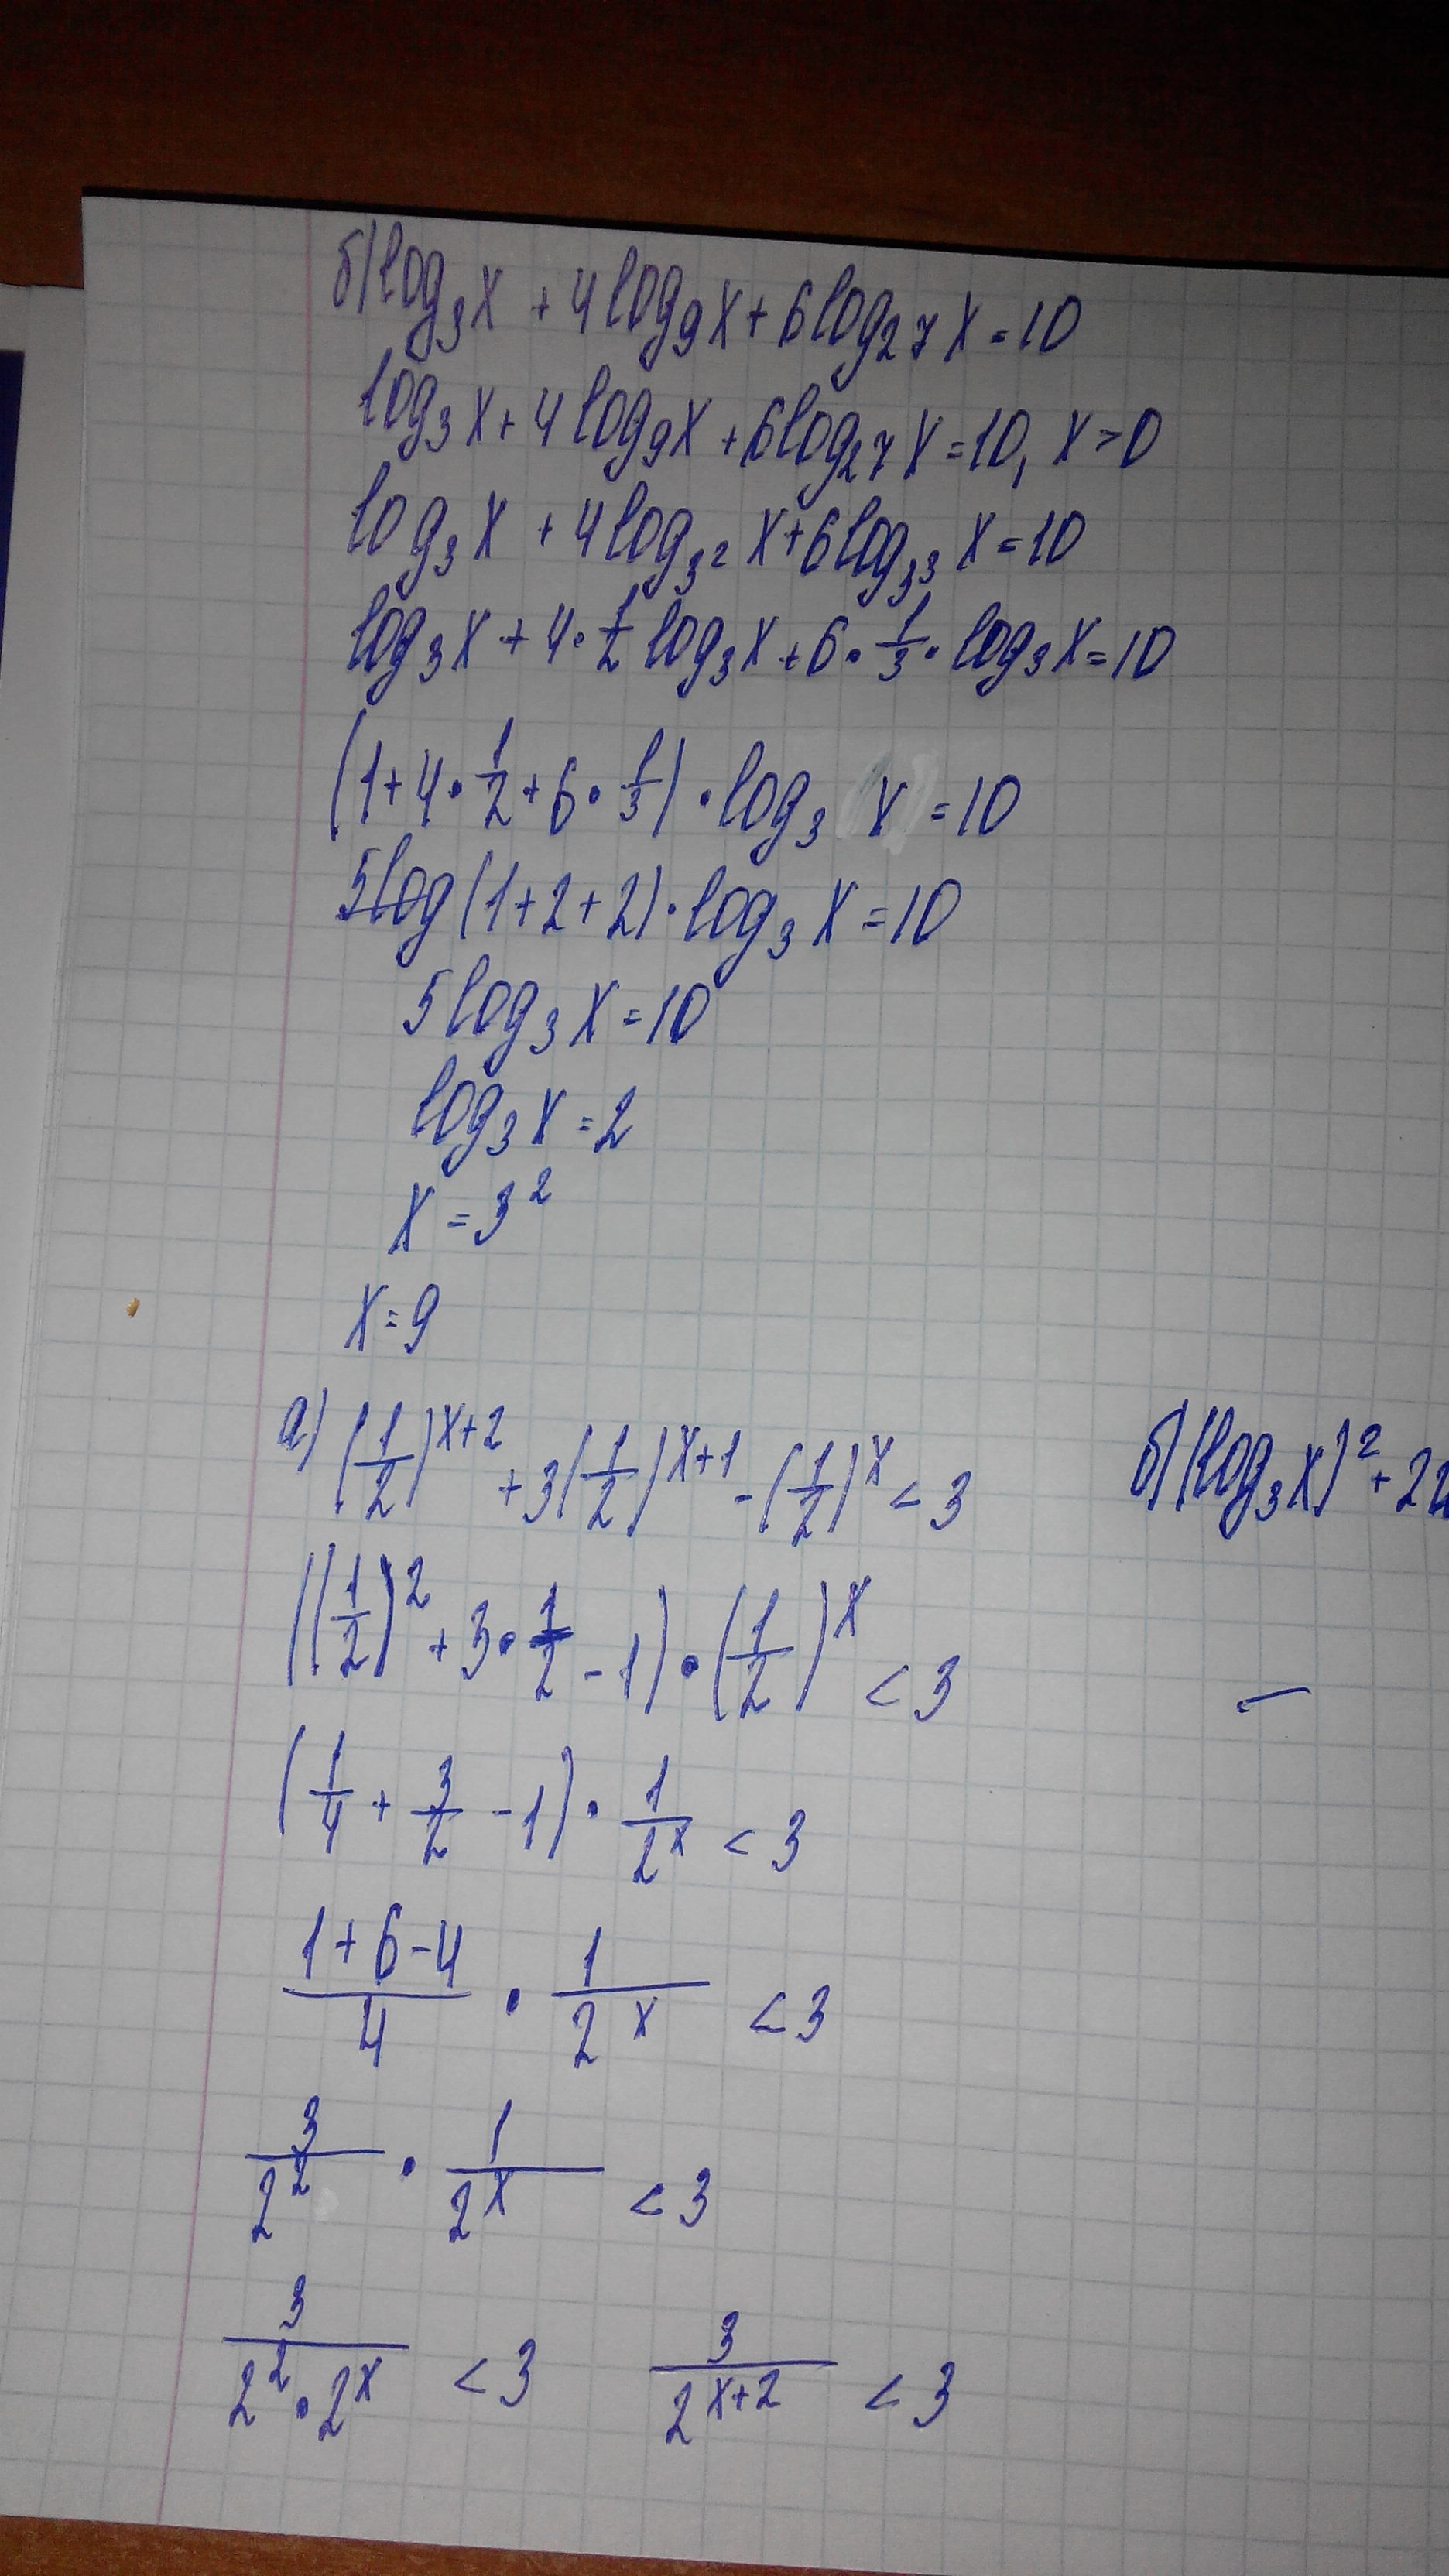 б) log₃x + 4log₉x + 6log₂₇x = 10
log₃x + 4log₉x + 6log₂₇x = 10, x > 0
log₃x + 4log_{3²}x + 6log_{3³}x = 10
log₃x + 4·1/2 log₃x + 6·1/3·log₃x = 10
(1 + 4·1/2 + 6·1/3)·log₃ x = 10
5log (1 + 2 + 2)·log₃x = 10
5log₃x = 10
log₃x = 2
x = 3²
x = 9
а) (1/2)^{x+2} + 3(1/2)^{x+1} - (1/2)^x < 3
б) (log₃x)² + 2
((1/2)² + 3·1/2 - 1)·(1/2)^x < 3
(1/4 + 3/2 - 1)·1/2^x < 3
(1+6-4)/4 · 1/2^x < 3
3/2² · 1/2^x < 3
3/(2²·2^x) < 3 3/2^{x+2} < 3